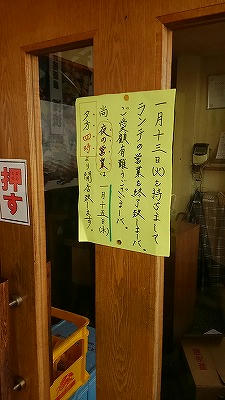 一月十三日(火)を持ちまして
ランチの営業を終了致しました。
ご愛顧有難うございました。
尚夜の営業は一月十五日(木)
夕方四時より開店致します。
押す